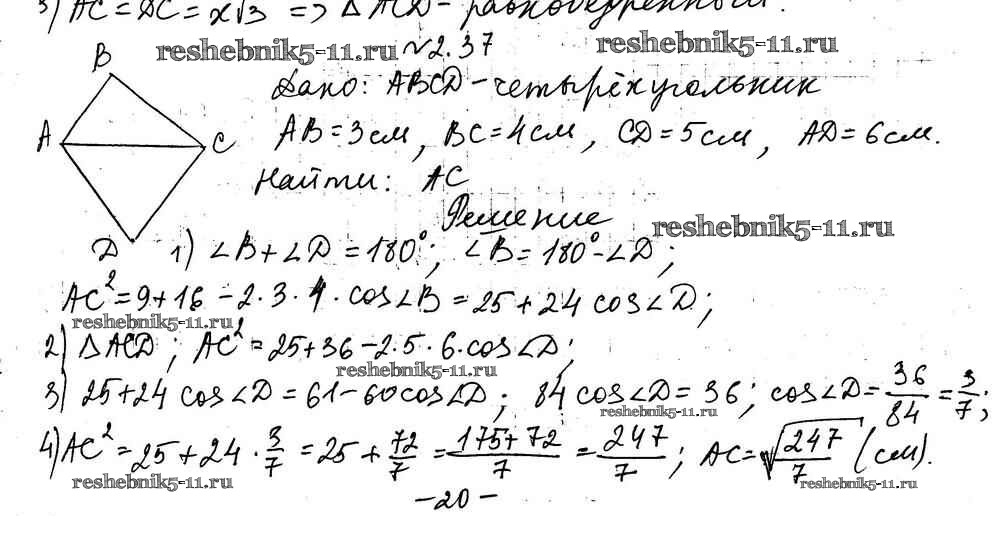 3) AC = DC = x√3 => △ACD - равнобедренный.
reshebnik5-11.ru №2.37 reshebnik5-11.ru
B
Дано: ABCD - четырёхугольник
A
C
AB = 3см, BC = 4см, CD = 5см, AD = 6см.
Найти: AC
Решение reshebnik5-11.ru
D
1) ∠B + ∠D = 180°; ∠B = 180° - ∠D;
AC² = 9 + 16 - 2·3·4·cos∠B = 25 + 24 cos∠D;
reshebnik5-11.ru
2) △ACD; AC² = 25 + 36 - 2·5·6·cos∠D;
reshebnik5-11.ru
3) 25 + 24 cos∠D = 61 - 60cos∠D; 84 cos∠D = 36; cos∠D = 36/84 = 3/7;
reshebnik5-11.ru
4) AC² = 25 + 24·3/7 = 25 + 72/7 = 175+72/7 = 247/7; AC = √247/7 (см).
reshebnik5-11.ru reshebnik5-11.ru
-20-